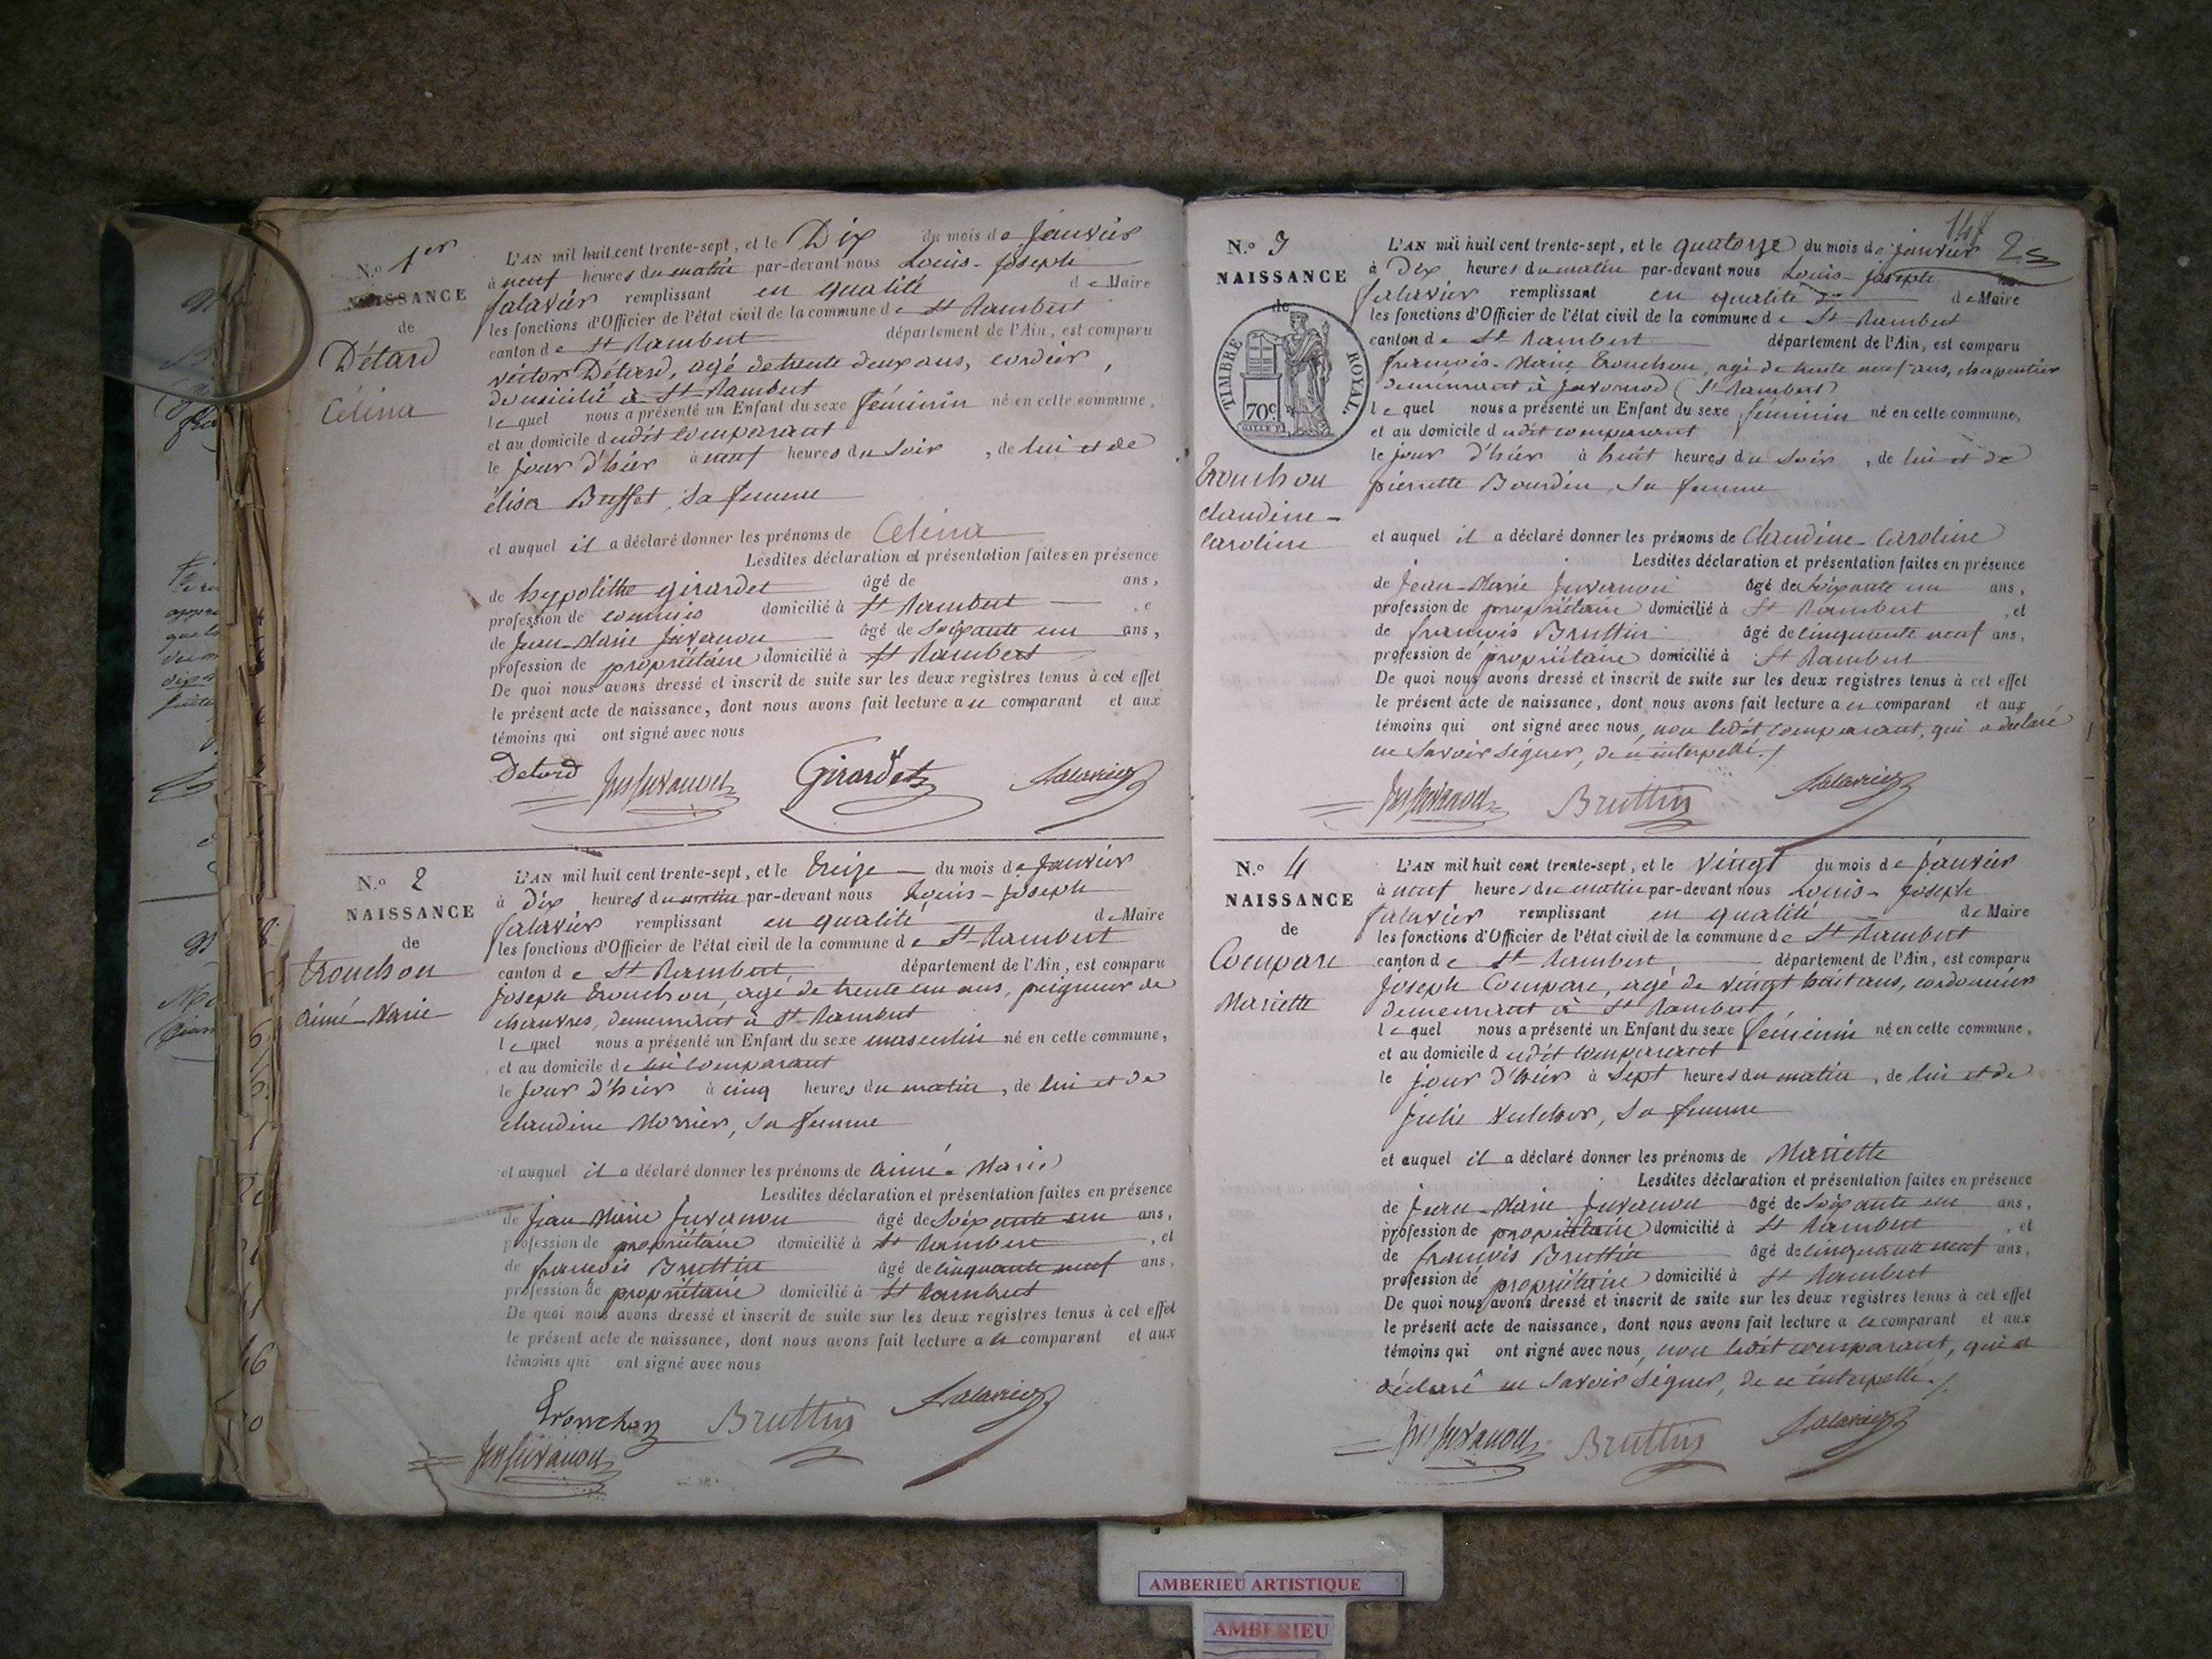 N.o 1er
NAISSANCE
de
Détard
Célina
L'AN mil huit cent trente-sept, et le Dix du mois de Janvier
à neuf heures du matin par-devant nous Louis-Joseph
Salavier remplissant en qualité de Maire
les fonctions d'Officier de l'état civil de la commune de St Rambert
canton de St Rambert département de l'Ain, est comparu
victor Détard, agé de trente deux ans, cordier,
domicilié à St Rambert
lequel nous a présenté un Enfant du sexe féminin né en cette commune,
et au domicile dudit comparant
le jour d'hier à neuf heures du soir, de lui et de
élisa Buffet, sa femme
et auquel il a déclaré donner les prénoms de Célina
Lesdites déclaration et présentation faites en présence
de hypolitte girardet âgé de ans,
profession de commis domicilié à St Rambert, e
de Jean-Marie Juvanon âgé de soixante un ans,
profession de propriétaire domicilié à St Rambert
De quoi nous avons dressé et inscrit de suite sur les deux registres tenus à cet effet
le présent acte de naissance, dont nous avons fait lecture au comparant et aux
témoins qui ont signé avec nous
Detard Juvanon Girardet Salavier
N.o 2
NAISSANCE
de
Tronchon
aimé-Marie
L'AN mil huit cent trente-sept, et le treize du mois de Janvier
à Dix heures du matin par-devant nous Louis-Joseph
Salavier remplissant en qualité de Maire
les fonctions d'Officier de l'état civil de la commune de St-Rambert
canton de St Rambert, département de l'Ain, est comparu
Joseph Tronchon, agé de trente un ans, peigneur de
chanvres, demeurant à St-Rambert
lequel nous a présenté un Enfant du sexe masculin né en cette commune,
et au domicile de lui comparant
le jour d'hier à cinq heures du matin, de lui et de
claudine Morrier, sa femme
et auquel il a déclaré donner les prénoms de aimé-Marie
Lesdites déclaration et présentation faites en présence
de Jean-Marie Juvanon âgé de soixante un ans,
profession de propriétaire domicilié à St Rambert, et
de francois Bruttin âgé de cinquante neuf ans,
profession de propriétaire domicilié à St Rambert
De quoi nous avons dressé et inscrit de suite sur les deux registres tenus à cet effet
le présent acte de naissance, dont nous avons fait lecture au comparant et aux
témoins qui ont signé avec nous
Tronchon Bruttin Salavier
Juvanon
147
25
N.o 3
NAISSANCE
de
TIMBRE ROYAL.
70c
Tronchon
claudine-
Caroline
L'AN mil huit cent trente-sept, et le quatorze du mois de janvier
à Dix heures du matin par-devant nous Louis-Joseph
Salavier remplissant en qualité de Maire
les fonctions d'Officier de l'état civil de la commune de St-Rambert
canton de St Rambert département de l'Ain, est comparu
francois-Marie Tronchon, agé de trente neuf ans, charpentier
demeurant à Javornod (St-Rambert)
lequel nous a présenté un Enfant du sexe féminin né en cette commune,
et au domicile dudit comparant
le jour d'hier à huit heures du soir, de lui et de
pierrette Bourdin, sa femme
et auquel il a déclaré donner les prénoms de Claudine-Caroline
Lesdites déclaration et présentation faites en présence
de Jean-Marie Juvanon âgé de soixante un ans,
profession de propriétaire domicilié à St Rambert, et
de francois Bruttin âgé de cinquante neuf ans,
profession de propriétaire domicilié à St Rambert
De quoi nous avons dressé et inscrit de suite sur les deux registres tenus à cet effet
le présent acte de naissance, dont nous avons fait lecture au comparant et aux
témoins qui ont signé avec nous, non ledit comparant, qui a déclaré
ne savoir signer, de ce interpellé./
Juvanon Bruttin Salavier
N.o 4
NAISSANCE
de
Compare
Mariette
L'AN mil huit cent trente-sept, et le vingt du mois de Janvier
à neuf heures du matin par-devant nous Louis-Joseph
Salavier remplissant en qualité de Maire
les fonctions d'Officier de l'état civil de la commune de St-Rambert
canton de St-Rambert, département de l'Ain, est comparu
Joseph Compare, agé de vingt huit ans, cordonnier
demeurant à St Rambert
lequel nous a présenté un Enfant du sexe féminin né en cette commune,
et au domicile dudit comparant
le jour d'hier à sept heures du matin, de lui et de
Julie , sa femme
et auquel il a déclaré donner les prénoms de Mariette
Lesdites déclaration et présentation faites en présence
de Jean-Marie Juvanon âgé de soixante un ans,
profession de propriétaire domicilié à St Rambert, et
de francois Bruttin âgé de cinquante neuf ans,
profession de propriétaire domicilié à St Rambert
De quoi nous avons dressé et inscrit de suite sur les deux registres tenus à cet effet
le présent acte de naissance, dont nous avons fait lecture au comparant et aux
témoins qui ont signé avec nous, non ledit comparant, qui a
déclaré ne savoir signer, de ce interpellé./
Juvanon Bruttin Salavier
AMBERIEU ARTISTIQUE
AMBERIEU